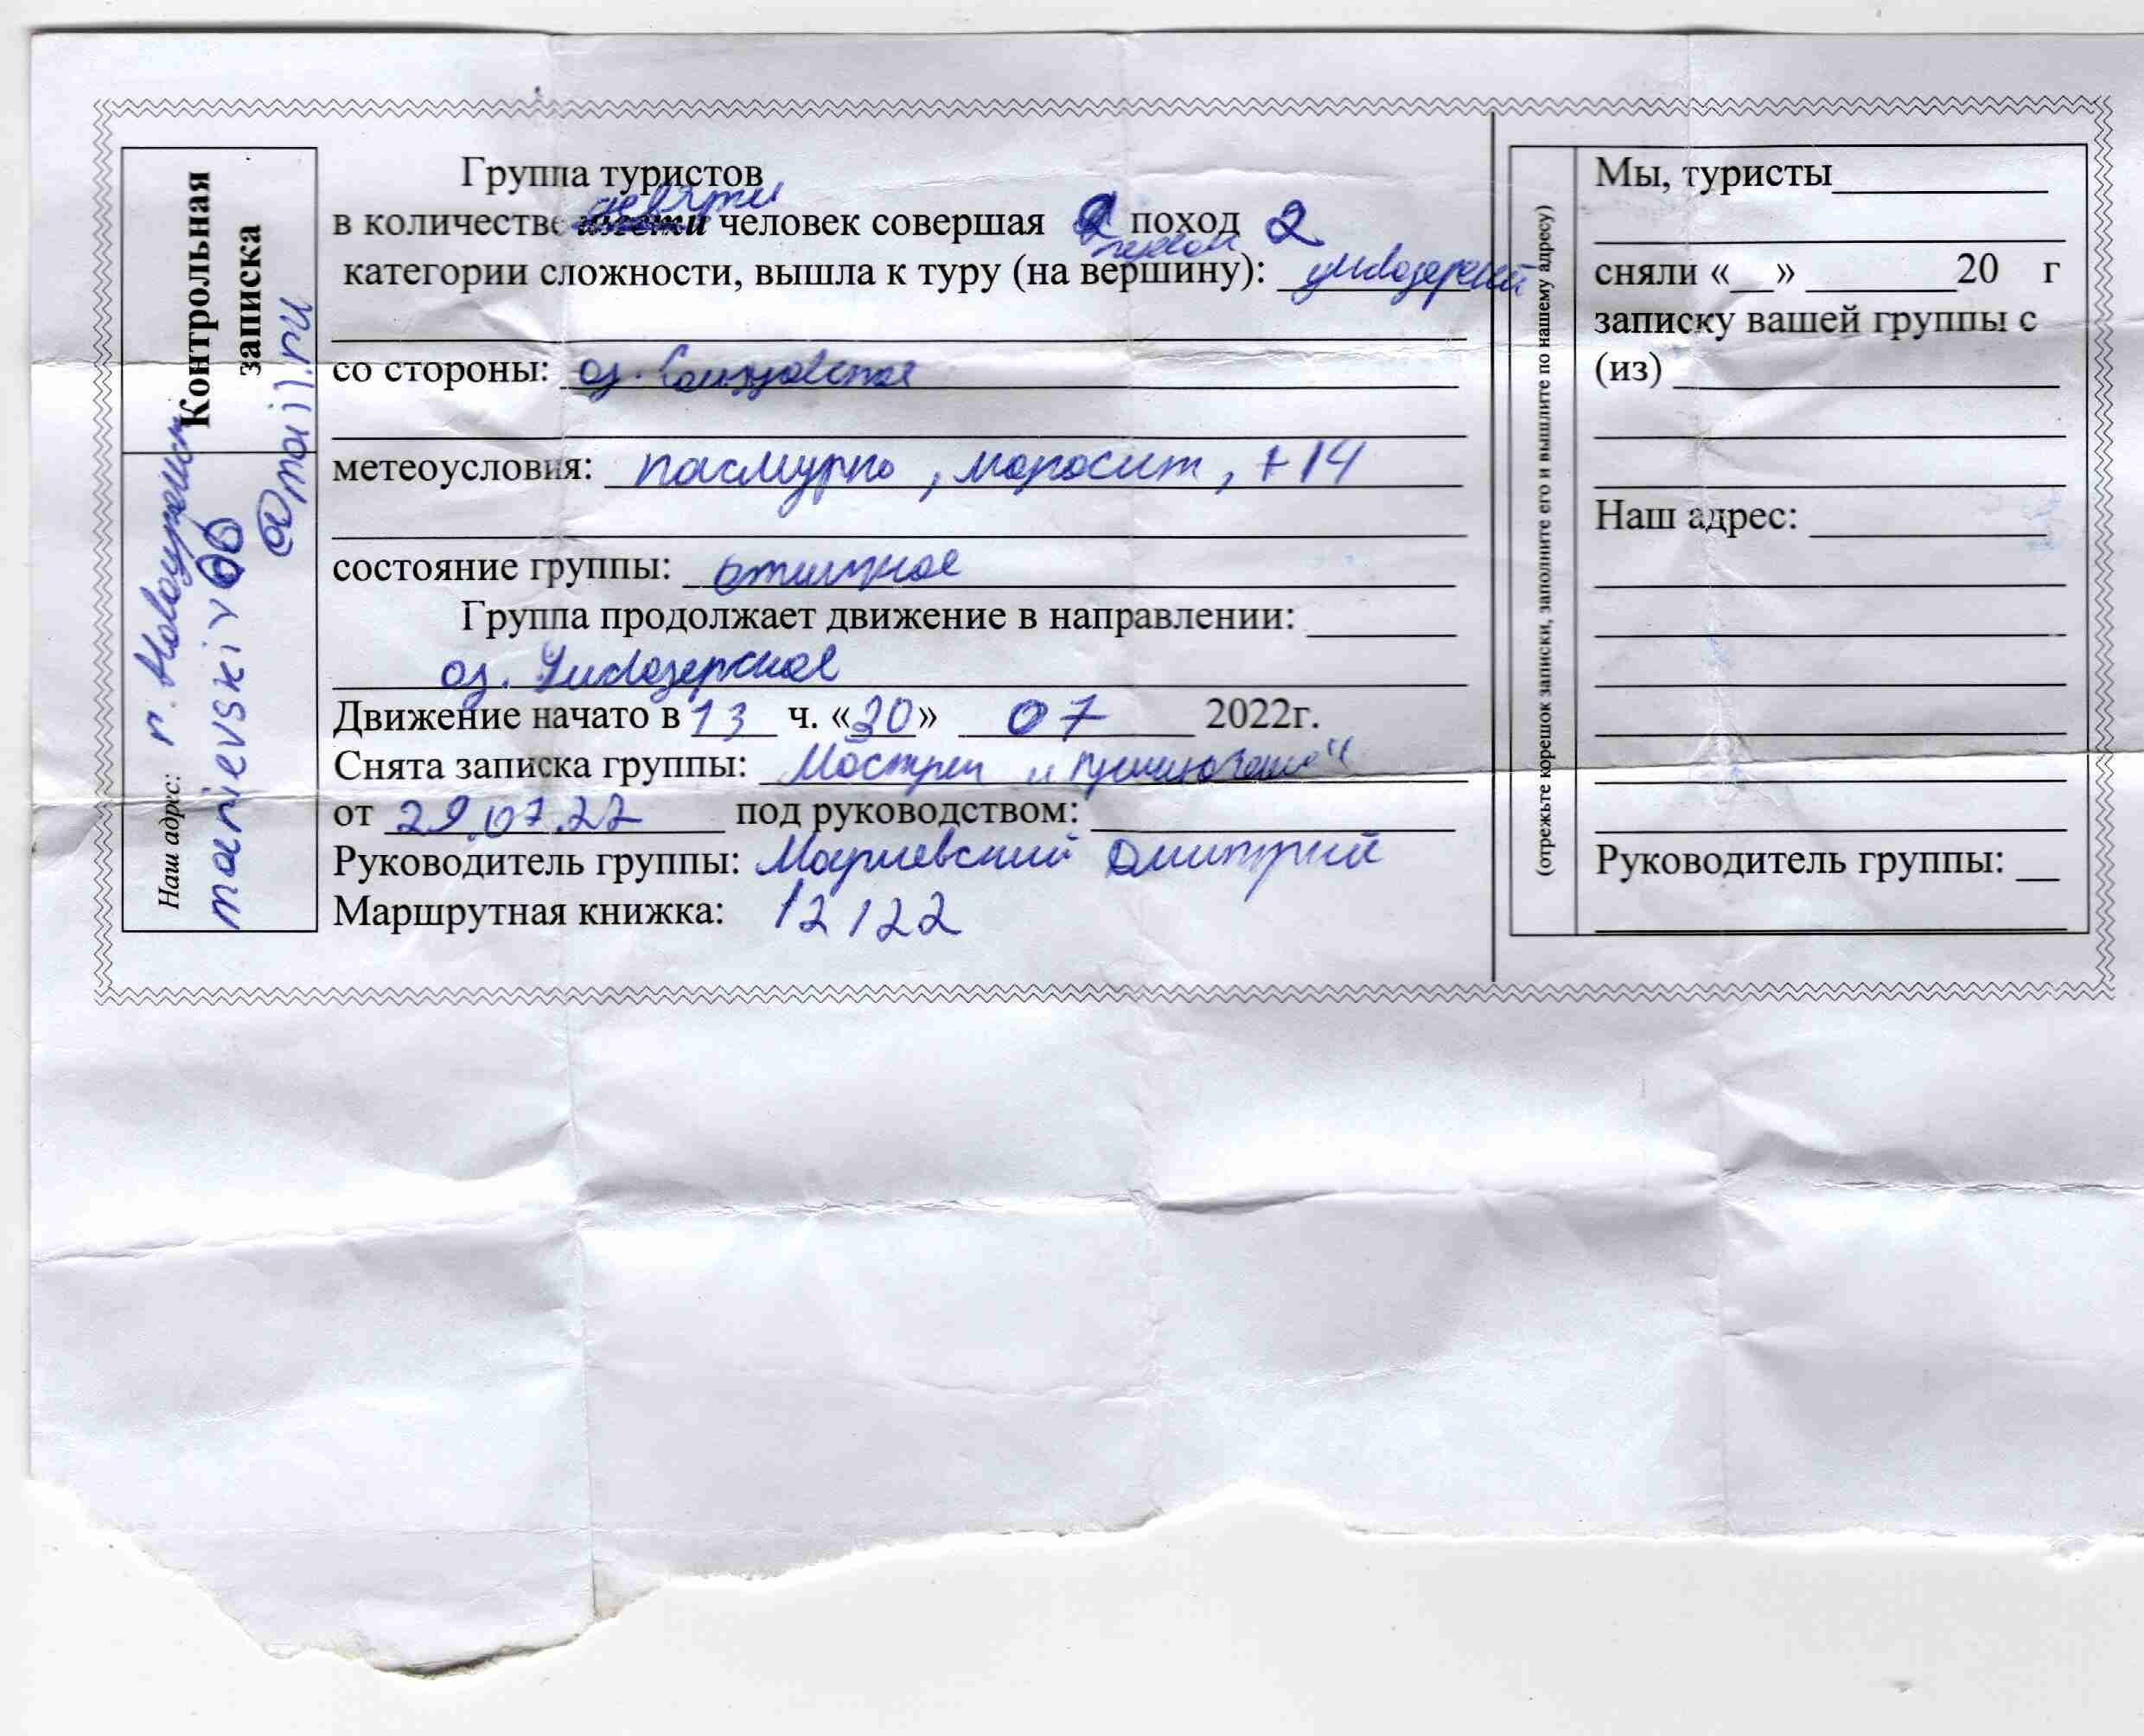 Контрольная
записка
Наш адрес: г. Новокузнецк
manievskiy06
@mail.ru
Группа туристов
девяти
в количестве шести человек совершая поход 2
категории сложности, вышла к туру (на вершину):
перевал
со стороны: оз.
метеоусловия: пасмурно, моросит, +14
состояние группы: отличное
Группа продолжает движение в направлении:
оз.
Движение начато в 13 ч. «30» 07 2022г.
Снята записка группы:
от 29.07.22 под руководством:
Руководитель группы: Маниевский Дмитрий
Маршрутная книжка: 12122
(отрежьте корешок записки, заполните его и вышлите по нашему адресу)
Мы, туристы
сняли «__» 20 г
записку вашей группы с
(из)
Наш адрес:
Руководитель группы: